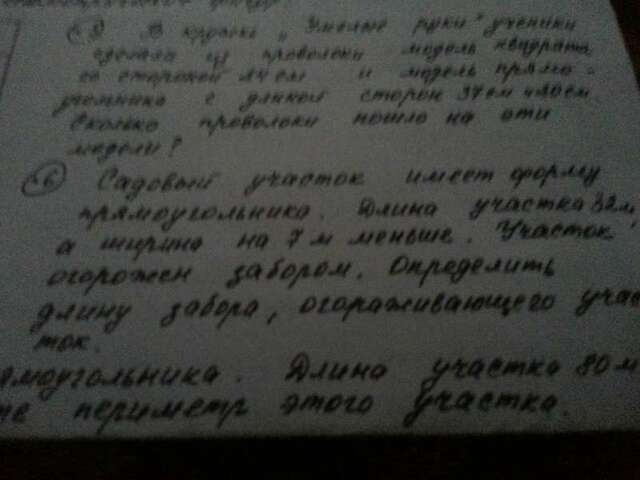 В кружке „Умелые руки" ученики
сделали из проволоки модель квадрата
со стороной 14 см и модель прямо-
угольника с длиной сторон 37 см
Сколько проволоки пошло на эти
модели?
6 Садовый участок имеет форму
прямоугольника. Длина участка 32 м,
а ширина на 7 м меньше. Участок
огорожен забором. Определить
длину забора, огораживающего учас
ток.
ямоугольника. Длина участка 80 м
те периметр этого участка.